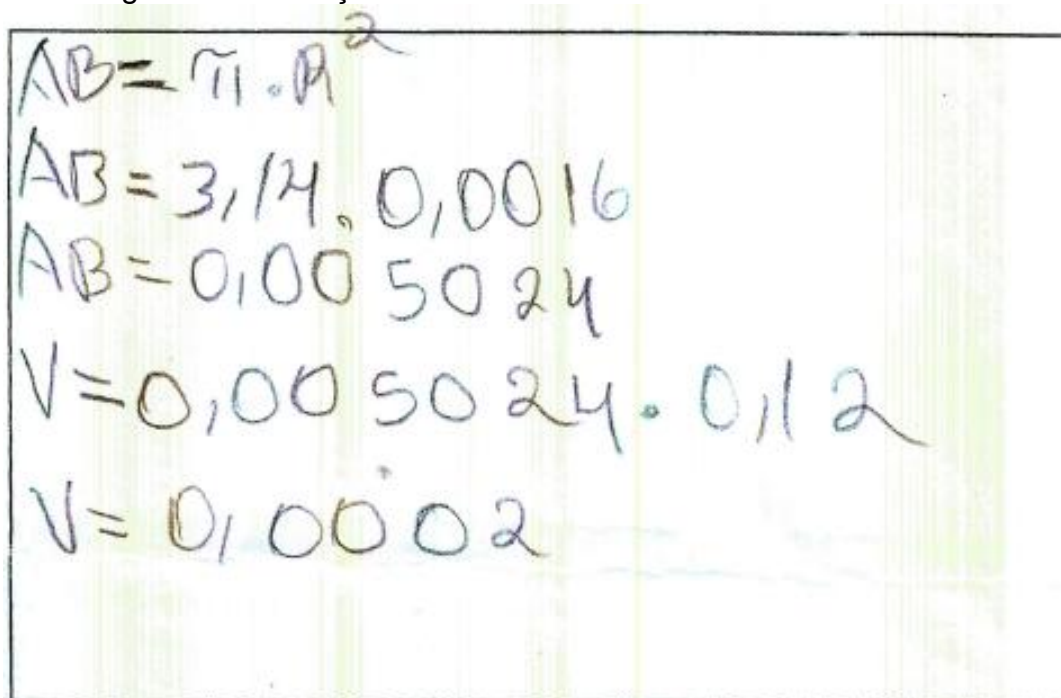 AB = π . R²
AB = 3,14 . 0,0016
AB = 0,005024
V = 0,005024 . 0,12
V = 0,0002